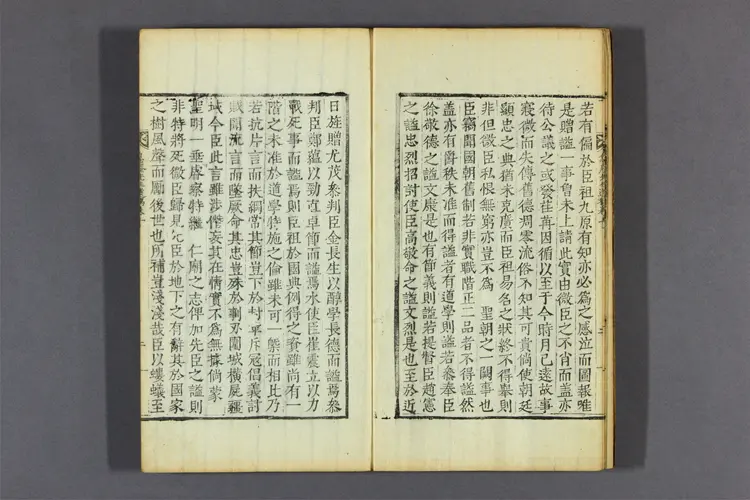 若有偏於臣祖九原有知亦必爲之感泣而圖報唯
是贈謚一事曾未上請此實由微臣之不肖而盖亦
待公議之或發荏苒因循以至于今時月已遠故事
寢微而失傳舊德凋零流俗不知其可貴倘使朝廷
顯忠之典猶未克廣而臣祖易名之狀終不得舉則
非但微臣私恨無窮亦豈不爲 聖朝之一闕事也
臣竊聞國朝舊制若非實職階正二品者不得謚然
盖亦有爵秩未准而得謚者有道學則謚若叅奉臣
徐敬德之謚文康是也有節義則謚若提督臣趙憲
之謚忠烈招討使臣高敬命之謚文烈是也至於近
日旌贈尤茂叅判臣金長生以醇學長德而謚焉叅
判臣鄭蘊以勁直卓節而謚焉水使臣崔震立以力
戰死事而謚焉則臣祖於國典例得之資雖尚有一
階之未准於道學特施之倫雖未可一槩而相比乃
若抗片言而扶綱常其節豈下於 斥冦倡義討
賊聞流言而墜厥命其忠豈殊於剚刃圍城橫屍疆
域今臣此言雖涉僭妄其在情實不爲無據倘蒙
聖明一垂 察特繼 仁廟之志俾加先臣之謚則
非特將死微臣歸見 臣於地下之有辭其於國家
之樹風聲而勵後世也所補豈淺淺哉臣以螻蟻至